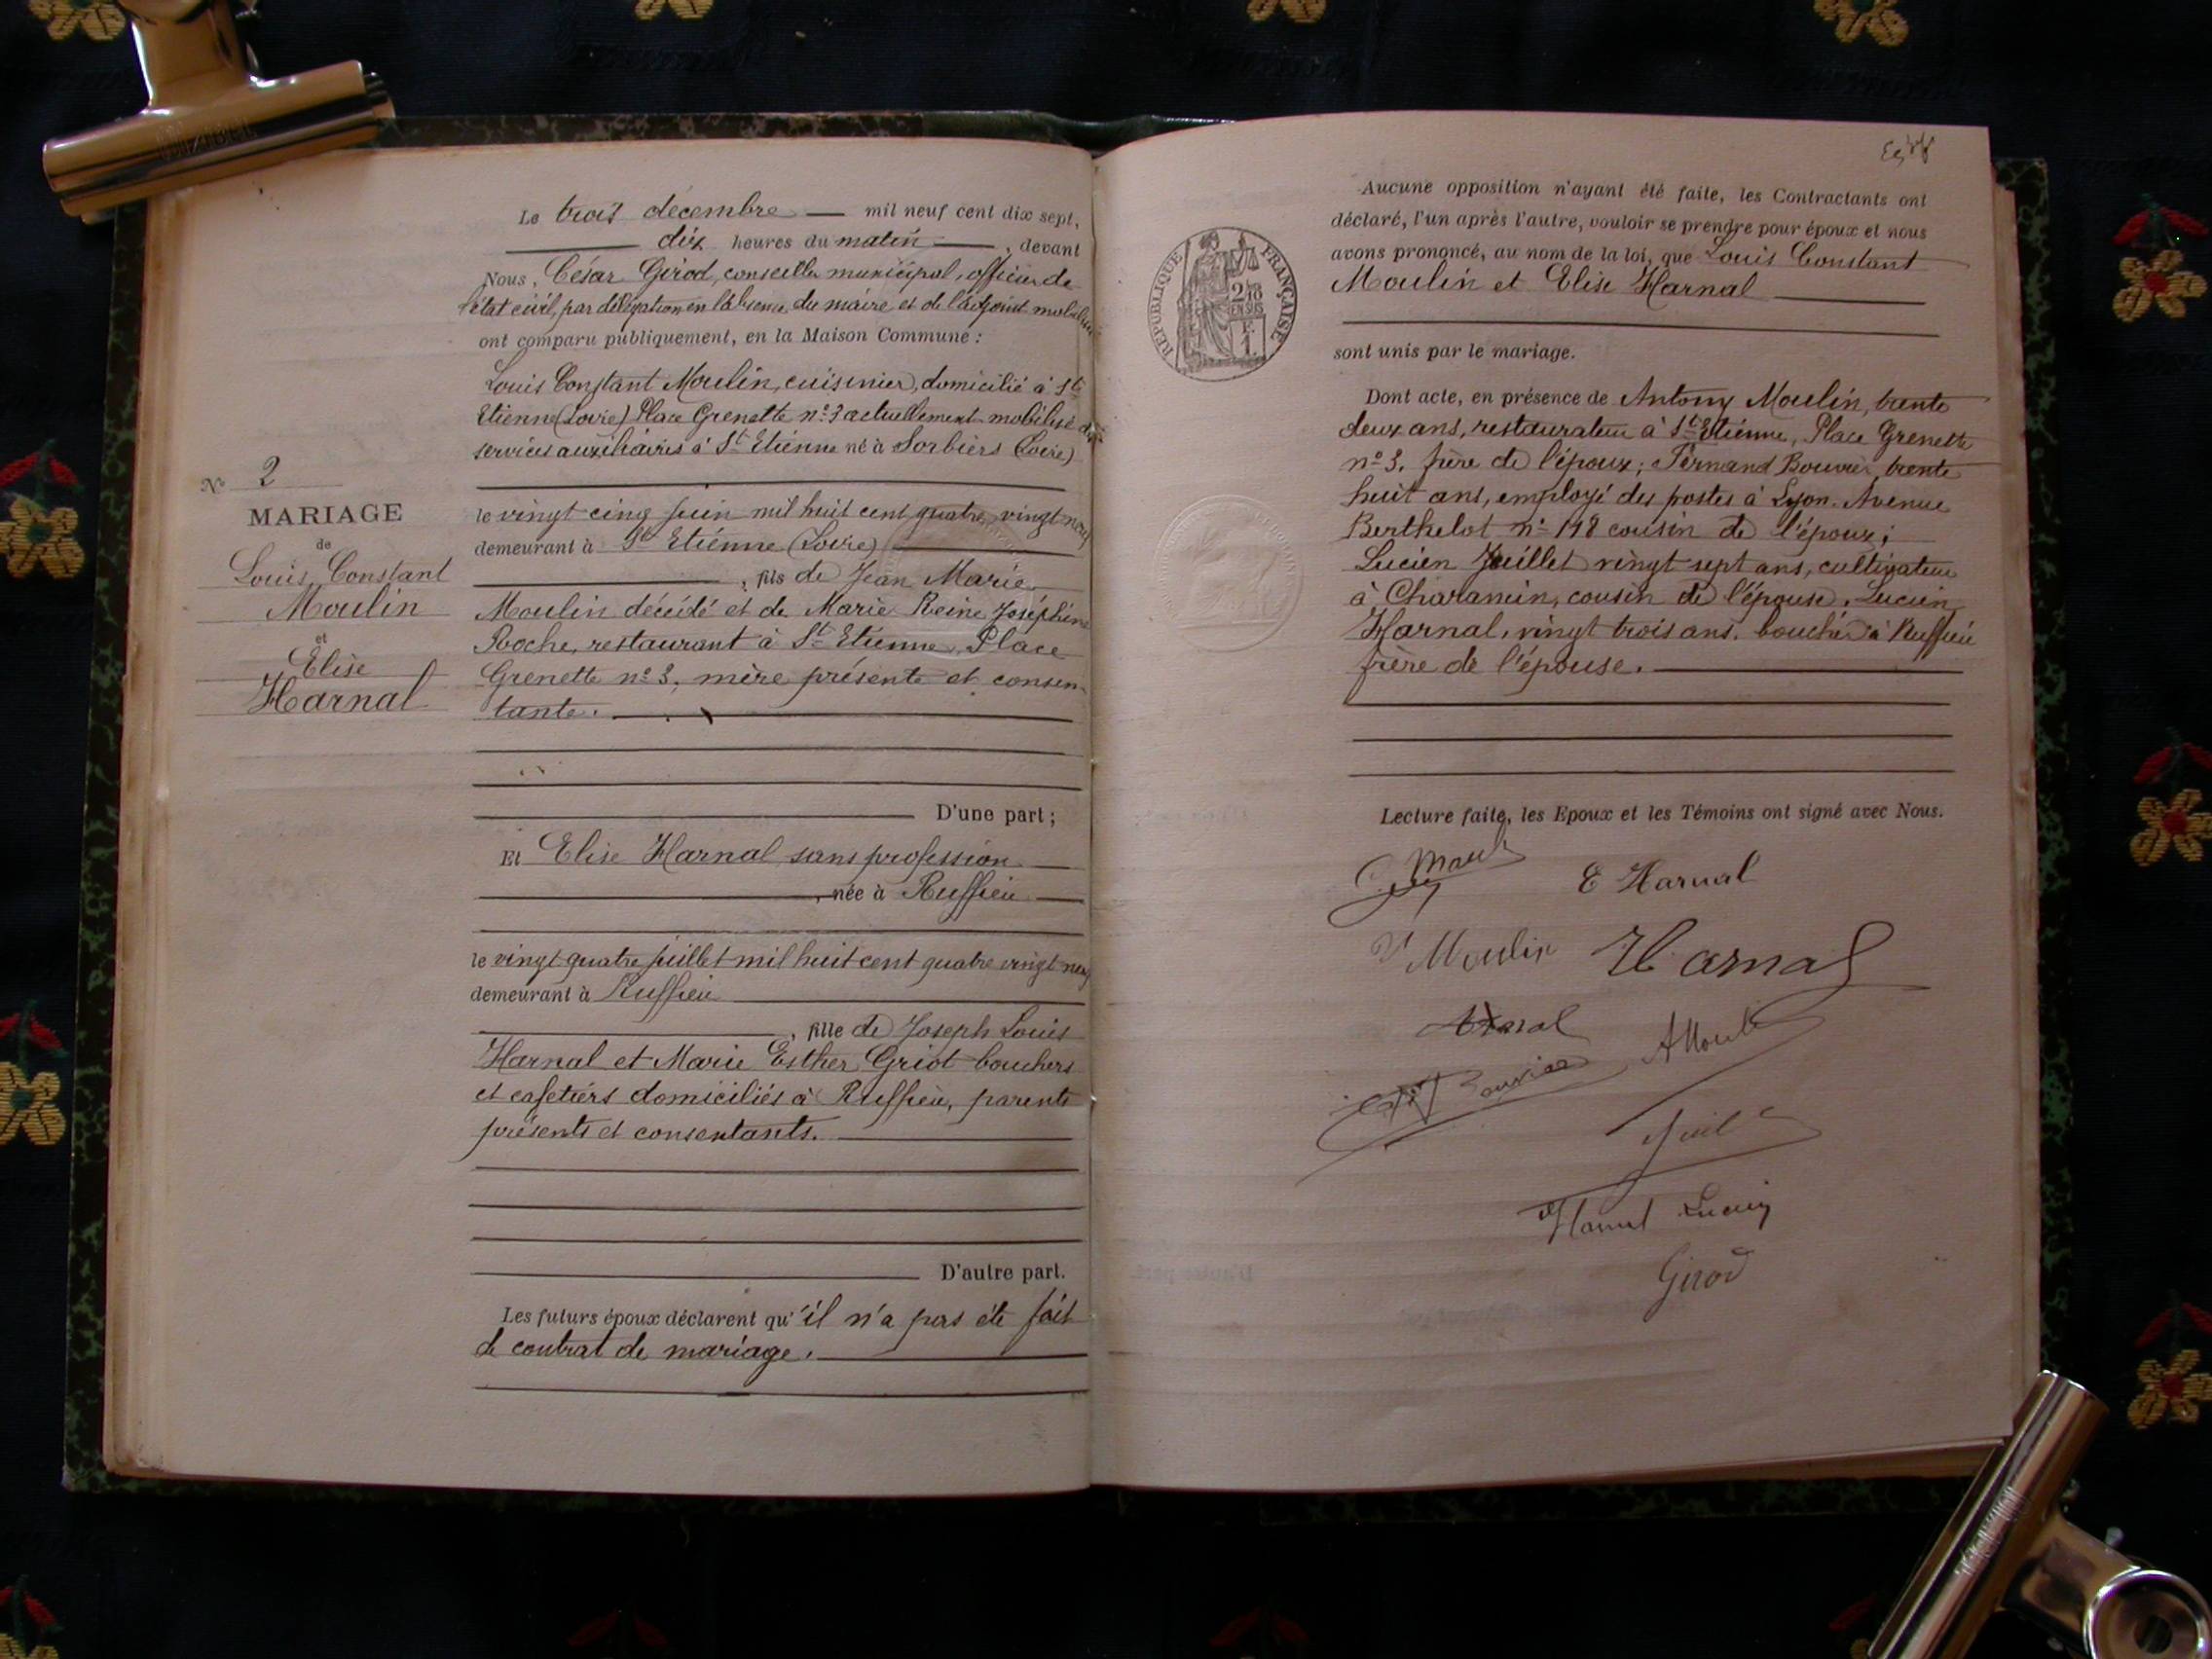 Le trois décembre mil neuf cent dix sept,
dix heures du matin, devant
Nous, César Girod, conseiller municipal, officier de
l'état civil, par délégation en l'absence du maire et de l'adjoint mobilisés
ont comparu publiquement, en la Maison Commune :
Louis Constant Moulin, cuisinier, domicilié à St
Etienne (Loire) Place Grenette n° 3 actuellement mobilisé dis
services auxiliaires à St Etienne né à Sorbiers (Loire)
le vingt cinq juin mil huit cent quatre vingt neuf
demeurant à St Etienne (Loire)
, fils de Jean Marie
Moulin décédé et de Marie Reine Joséphine
Roche, restaurant à St Etienne, Place
Grenette n° 3, mère présente et consen-
tante.
D'une part ;
Et Elise Harnal sans profession
, née à Ruffieu
le vingt quatre juillet mil huit cent quatre vingt neuf
demeurant à Ruffieu
, fille de Joseph Louis
Harnal et Marie Esther Griot bouchers
et cafetiers domiciliés à Ruffieu, parents
présents et consentants.
D'autre part.
Les futurs époux déclarent qu'il n'a pas été fait
de contrat de mariage.
N° 2
MARIAGE
de
Louis Constant
Moulin
et
Elise
Harnal
Aucune opposition n'ayant été faite, les Contractants ont
déclaré, l'un après l'autre, vouloir se prendre pour époux et nous
avons prononcé, au nom de la loi, que Louis Constant
Moulin et Elise Harnal
sont unis par le mariage.
Dont acte, en présence de Antony Moulin, trente
deux ans, restaurateur à St Etienne, Place Grenette
n° 3, frère de l'époux ; Fernand Bouvier, trente
huit ans, employé des postes à Lyon. Avenue
Berthelot n° 118 cousin de l'époux ;
Lucien Juillet vingt sept ans, cultivateur
à Charancin, cousin de l'épouse, Lucien
Harnal, vingt trois ans, boucher à Ruffieu
frère de l'épouse.
Lecture faite, les Epoux et les Témoins ont signé avec Nous.
E Harnal
Vve Moulin
Harnal
Bouvier
A Moulin
Harnal Lucien
Girod
RÉPUBLIQUE FRANÇAISE
2/10
EN SUS
F.
1.